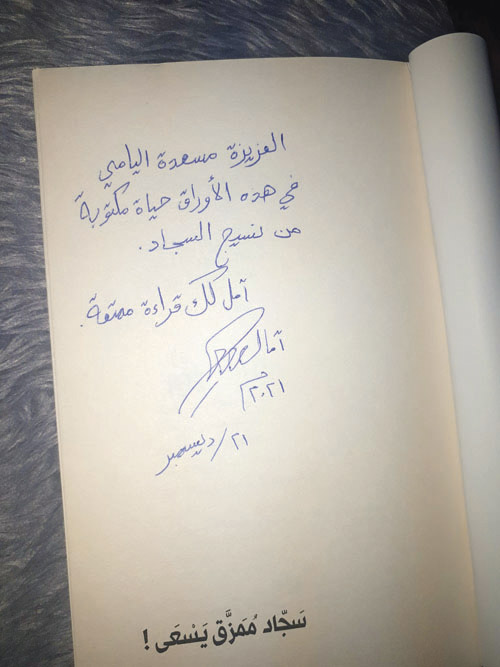 العزيزة مسعدة اليامي
في هذه الأوراق حياة مكتوبة
من نسيج السجاد.
آمل لك قراءة ممتعة.
آمال
٢٠٢١م
٢١/ديسمبر
سَجّاد مُمَزَّق يَسْعَى !